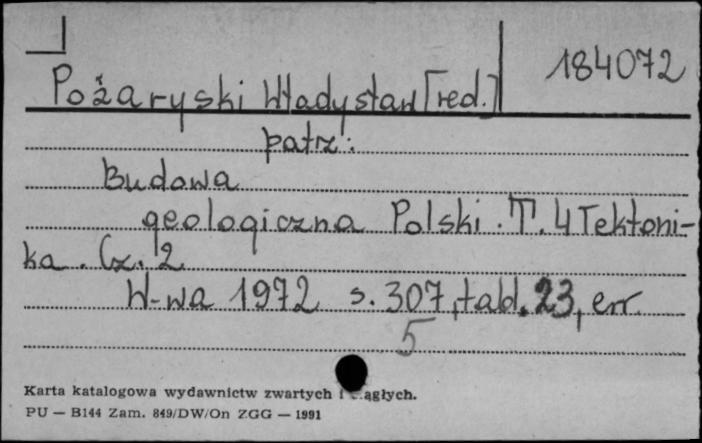 184072
Pożaryski Władysław [red.]
patrz:
Budowa
geologiczna Polski. T. 4 Tektoni-
ka. Cz. 2
W-wa 1972 s. 307, tabl. 23, err.
5
Karta katalogowa wydawnictw zwartych i ągłych.
PU — B144 Zam. 849/DW/On ZGG — 1991